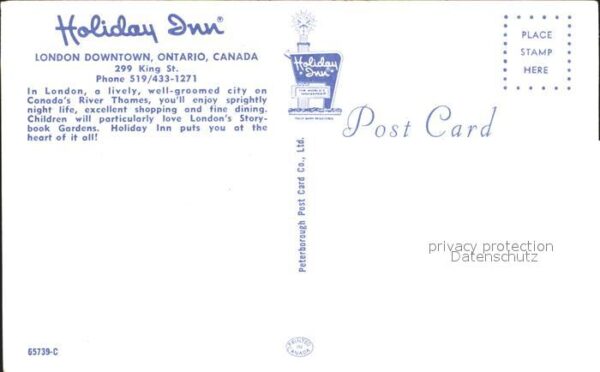 Holiday Inn®
LONDON DOWNTOWN, ONTARIO, CANADA
299 King St.
Phone 519/433-1271
In London, a lively, well-groomed city on
Canada's River Thames, you'll enjoy sprightly
night life, excellent shopping and fine dining.
Children will particularly love London's Story-
book Gardens. Holiday Inn puts you at the
heart of it all!
Holiday
Inn®
Peterborough Post Card Co., Ltd.
Post Card
PLACE
STAMP
HERE
privacy protection
Datenschutz
65739-C
PRINTED
IN
CANADA